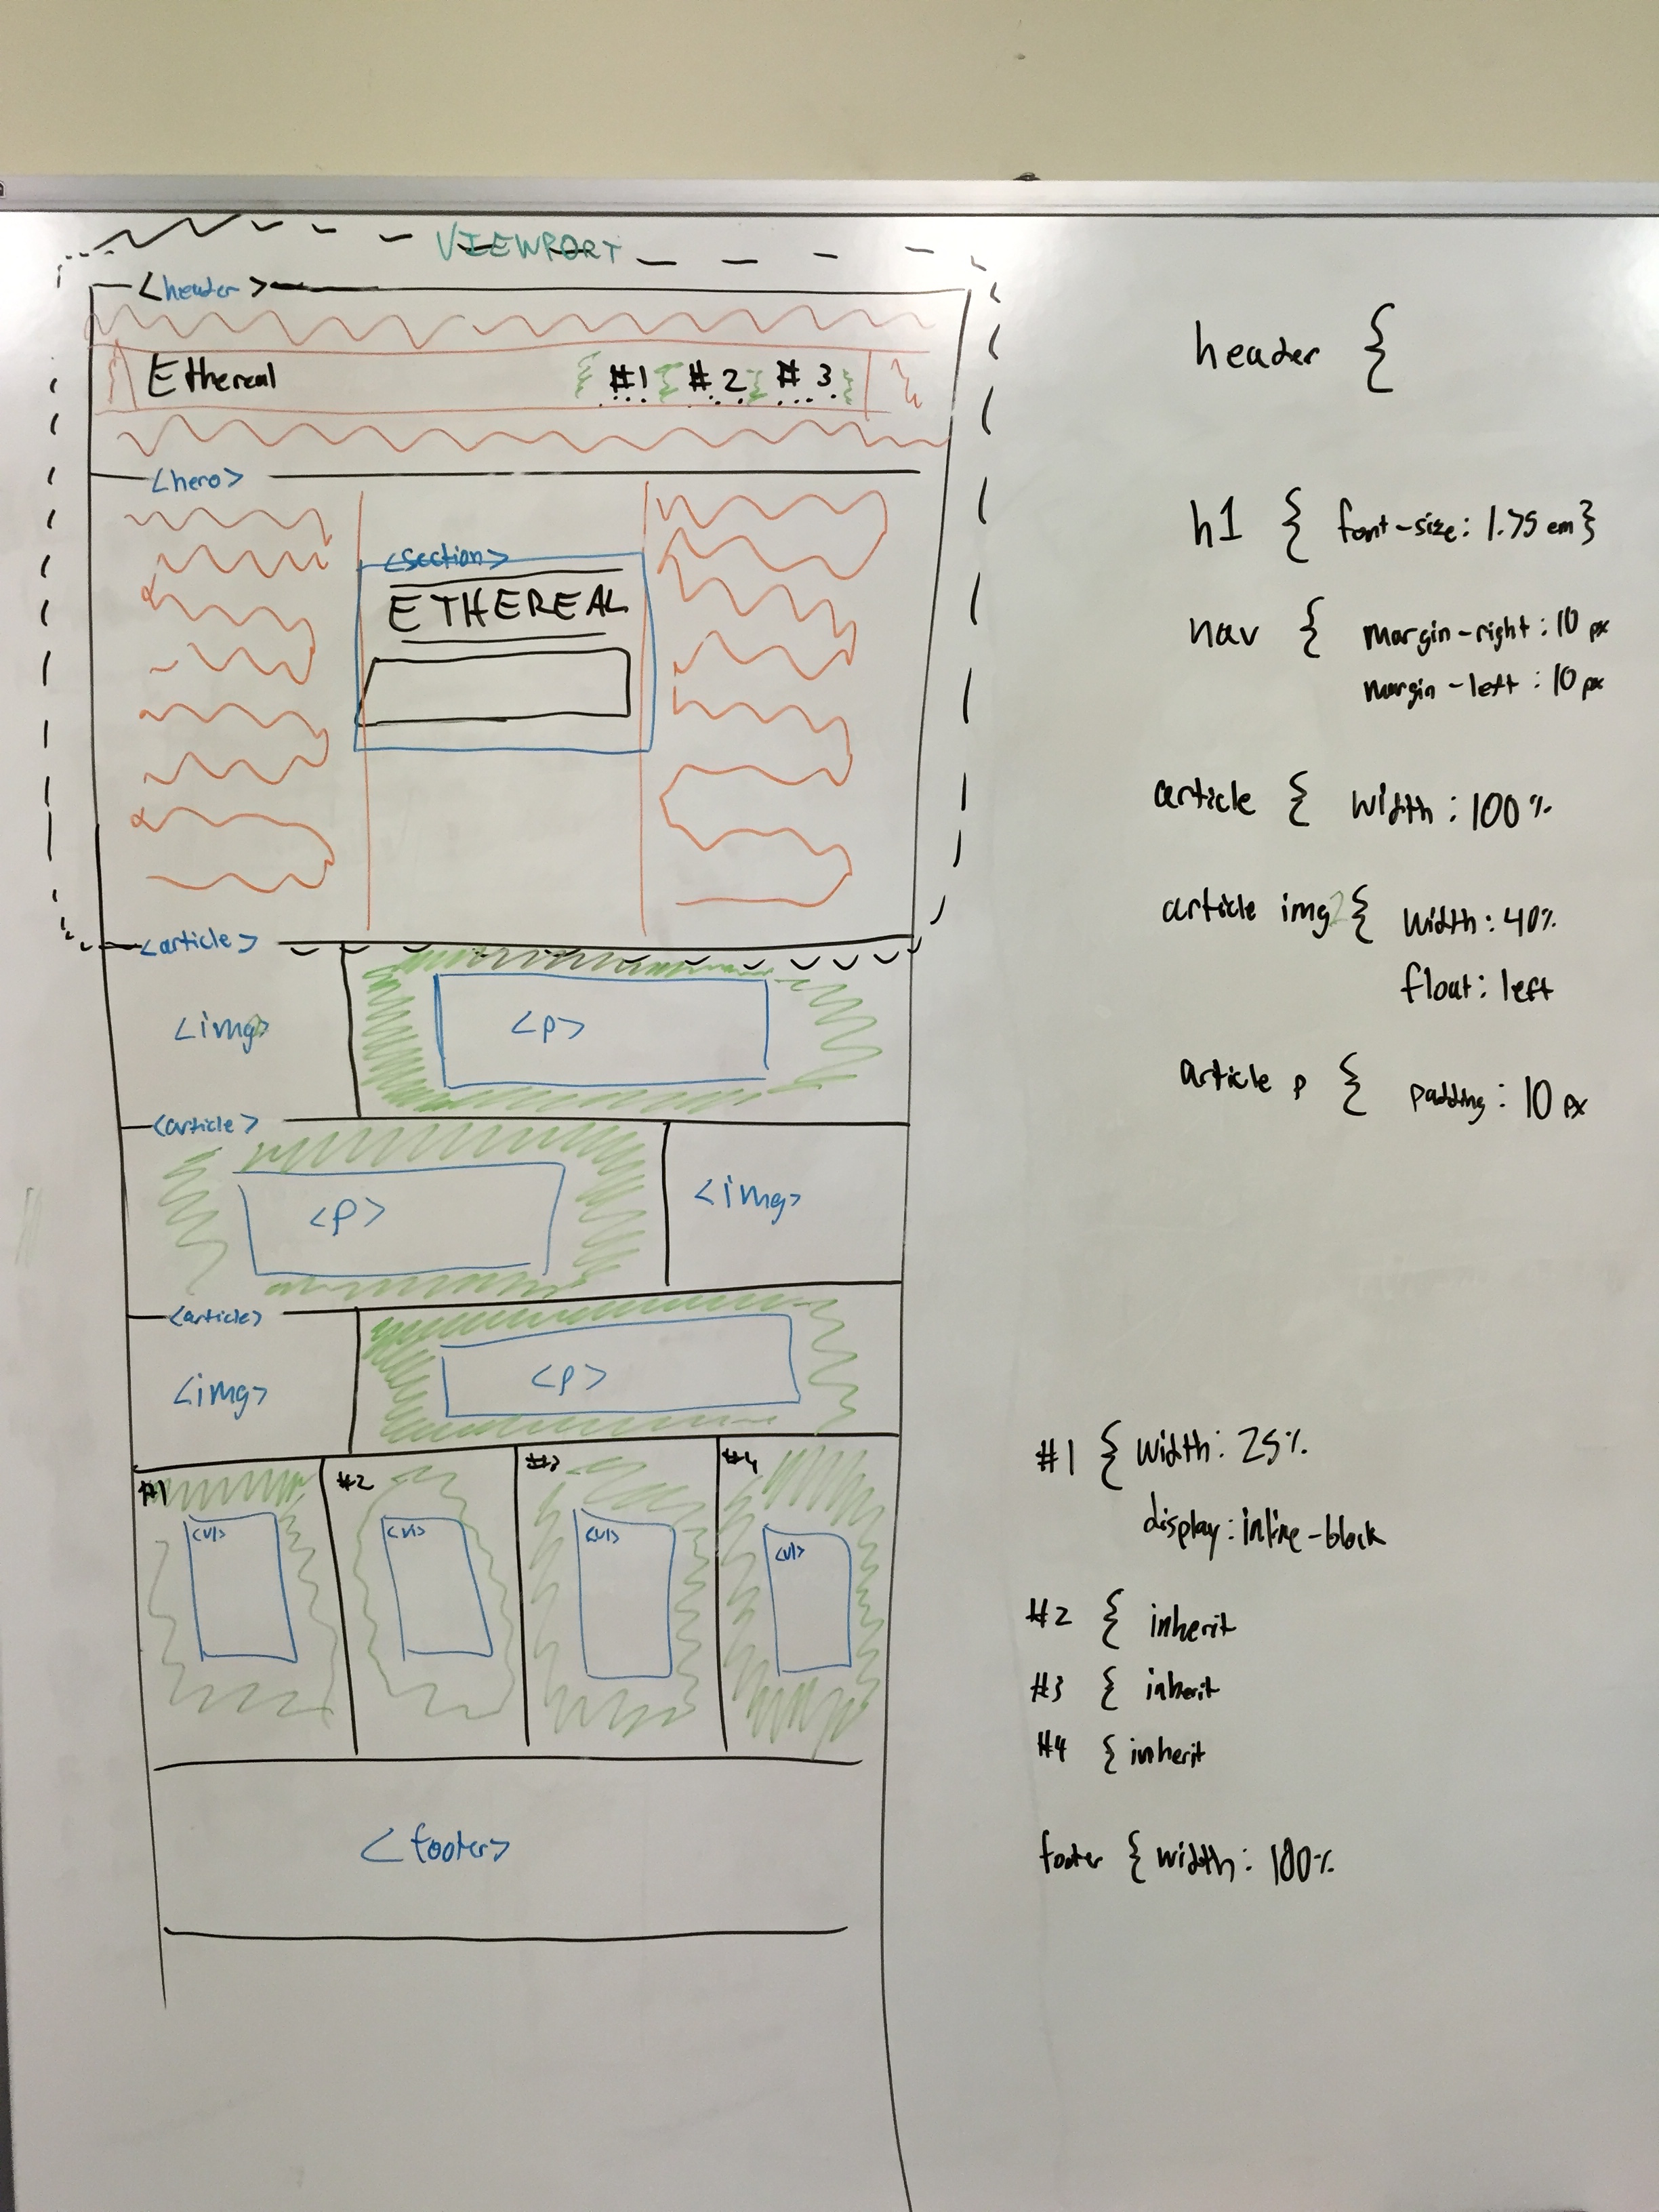 VIEWPORT
<header>
Ethereal #1 #2 #3
<hero>
<section>
ETHEREAL
<article>
<img> <p>
<article>
<p> <img>
<article>
<img> <p>
#1 #2 #3 #4
<ul> <ul> <ul> <ul>
<footer>
header {
h1 { font-size: 1.75 em}
nav { margin-right: 10 px
margin-left: 10 px
article { width: 100%
article img { width: 40%
float: left
article p { padding: 10 px
#1 { width: 25%
display: inline-block
#2 { inherit
#3 { inherit
#4 { inherit
footer { width: 100%